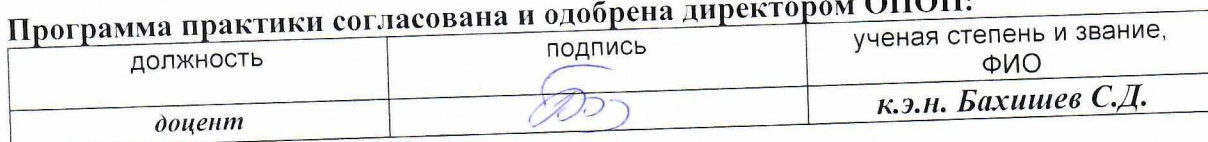 Программа практики согласована и одобрена директором ОПОП:
должность подпись ученая степень и звание,
ФИО
доцент к.э.н. Бахишев С.Д.